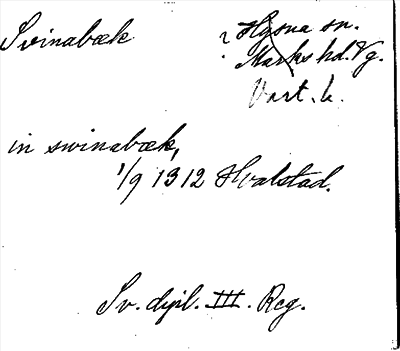 Svinabæk
? Hyssna sn.
Marks hd. Vg.
Vart. k.
in swinabæk,
1/9 1312 Hvalstad.
Sv. dipl. III. Reg.